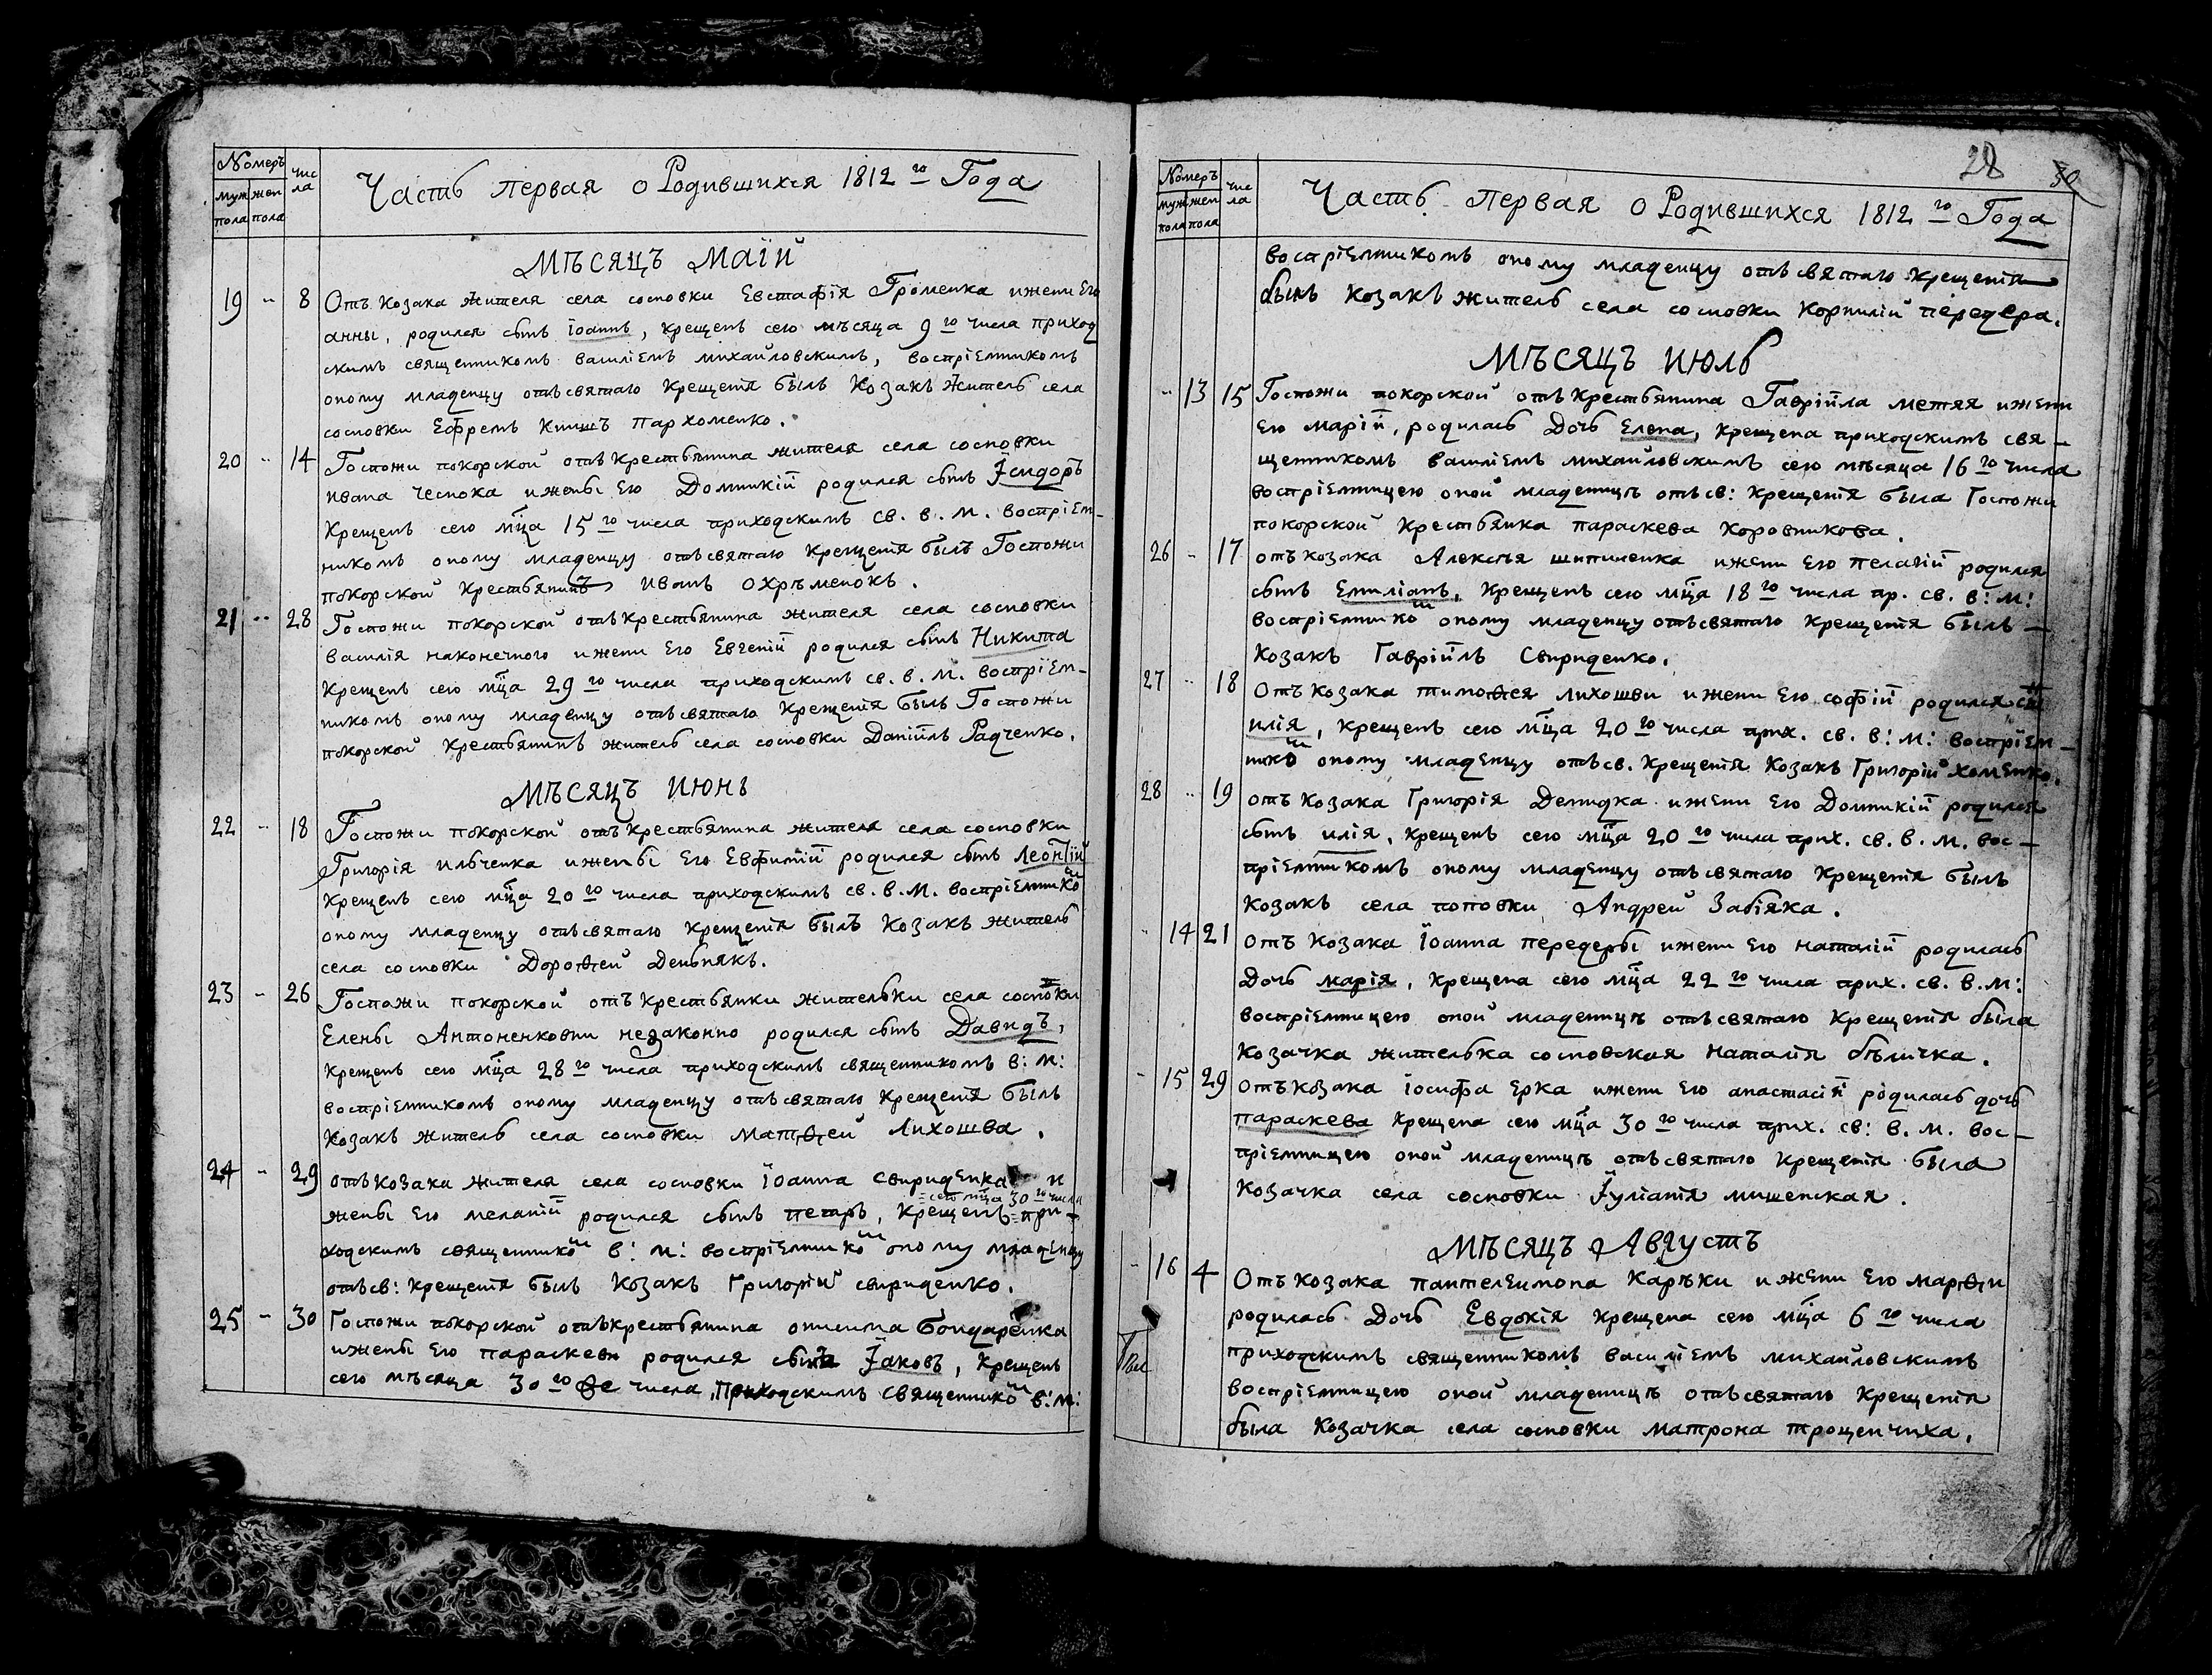 Номеръ
муж пола
жен пола
чис ла
Часть первая о Родившихся 1812 го Года
Мѣсяцъ Маій
19 .. 8 Отъ Козака жителя села сосновки Евстафія Громенка и жены Его
анны, родился сынъ Іоаннъ, крещенъ сего мѣсяца 9 го числа приход
скимъ священникомъ василіемъ михайловскимъ, воспріемникомъ
оному младенцу отъ святаго крещенія былъ Козакъ житель села
сосновки Ефремъ Пархоменко.
20 .. 14 Госпожи покорской отъ крестьянина жителя села сосновки
ивана чеснока и жены Его Домникіи родился сынъ Ісидоръ
Крещенъ сего мца 15 го числа приходскимъ св. в. м. воспріем-
никомъ оному младенцу отъ святаго крещенія былъ Госпожи
покорской Крестьянинъ иванъ охрѣменокъ.
21 .. 28 Госпожи покорской отъ крестьянина жителя села сосновки
василія наконечного и жены Его Евгеніи родился сынъ Никита
Крещенъ сего мца 29 го числа приходскимъ св. в. м. воспріем-
никомъ оному младенцу отъ святаго Крещенія былъ Госпожи
покорской крестьянинъ житель села сосновки Даніилъ Радченко.
Мѣсяцъ Июнь
22 .. 18 Госпожи покорской отъ крестьянина жителя села сосновки
Григорія ильченка и жены Его Евфиміи родился сынъ Леонтій
Крещенъ сего мца 20 го числа приходскимъ св. в. м. воспріемнико м
оному младенцу отъ святаго крещенія былъ Козакъ житель
села сосновки Дороѳей Деньнякъ.
23 - 26 Госпожи покорской отъ крестьянки жительки села сосновки
Елены Антоненковни незаконно родился сынъ Давидъ,
Крещенъ сего мца 28 го числа приходскимъ священникомъ в: м:
воспріемникомъ оному младенцу отъ святаго Крещенія былъ
Козакъ житель села сосновки Матѳей Лихошва.
24 - 29 отъ козака жителя села сосновки Іоанна Свириденка и
жены Его меланіи родился сынъ петръ, Крещенъ = сего мца 30 го числа = при-
ходскимъ священнико м в: м: воспріемнико м оному младенцу
отъ св: крещенія былъ Козакъ Григорій свириденко.
25 - 30 Госпожи покорской отъ крестьянина онисима Бондаренка
и жены Его параскеви родился сынъ Іаковъ, Крещенъ
сего мѣсяца 30 го числа, Приходскимъ священнико м в: м:
28
30
Номеръ
муж пола
жен пола
чис ла
Часть первая о Родившихся 1812 го Года
воспріемникомъ оному младенцу отъ святаго Крещенія
былъ Козакъ житель села сосновки Корнилій передера.
Мѣсяцъ Июль
.. 13 15 Госпожи покорской отъ Крестьянина Гавріила метяя и жены
Его маріи, родилась Дочь Елена, Крещена приходскимъ свя-
щенникомъ василіемъ михайловскимъ сего мѣсяца 16 го числа
воспріемницею оной младеницѣ отъ св: Крещенія была Госпожи
покорской Крестьянка параскева Коровникова.
26 - 17 отъ козака Алексѣя шипиленка и жены Его пелагіи родился
сынъ Емиліанъ, Крещенъ сего мца 18 го числа пр. св. в: м:
воспріемнико м оному младенцу отъ святаго Крещенія былъ -
Козакъ Гавріилъ Свириденко.
27 .. 18 Отъ козака тимоѳея лихошви и жены Его софіи родился сынъ
илія, Крещенъ сего мца 20 го числа прих. св. в: м: воспріем-
нико м оному младенцу отъ св. Крещенія Козакъ Григорій хоменко.
28 .. 19 отъ Козака Григорія Демидка и жены Его Домникіи родился
сынъ илія, Крещенъ сего мца 20 го числа прих. св. в. м. вос-
пріемникомъ оному младенцу отъ святаго Крещенія былъ
Козакъ села поповки Андрей Забіяка.
- 14 21 Отъ Козака Іоанна передеры и жены Его наталіи родилась
Дочь марія, Крещена сего мца 22 го числа прих. св. в. м:
воспріемницею оной младеницѣ отъ святаго Крещенія была
Козачка жителька сосновская наталія бѣличка.
- 15 29 Отъ козака іосифа Ерка и жены Его анастасіи родилась дочь
параскева Крещена сего мца 30 го числа прих. св: в. м. вос-
пріемницею оной младеницѣ отъ святаго Крещенія была
Козачка села сосновки Іуліанія мишенская.
Мѣсяцъ Августъ
- 16 4 Отъ Козака пантелеимона Карѣки и жены Его Марѳи
родилась Дочь Евдокія Крещена сего мца 6 го числа
приходскимъ священникомъ василіемъ михайловскимъ
воспріемницею оной младеницѣ отъ святаго Крещенія
была Козачка села сосновки Матрона трощенчиха.